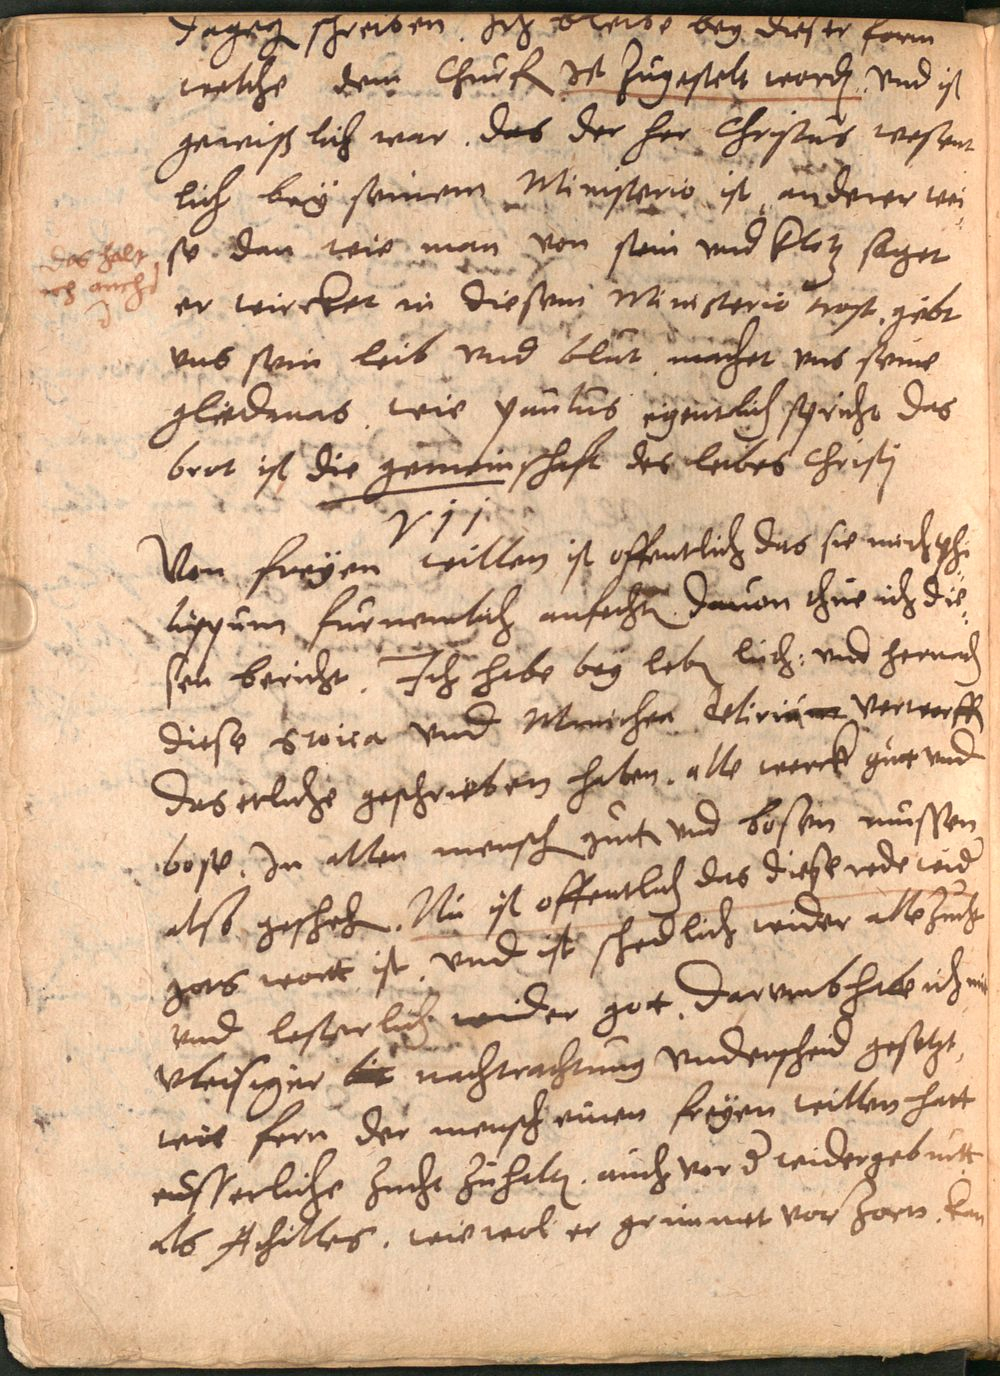 dagegen schreiben. Ich bleibe bey dieser form
welche dem Churf ist zugestelt worden. vnd ist
gewißlich war. das der her Christus wesent
lich bey seinem Ministerio ist, anderer wei-
se dan wie man von stein vnd klotz saget
das halt
ich auch
er wircket in diesem Ministerio trost, gibt
vns sein leib vnd blut, machet vns seine
gliedmas, wie paulus eigentlich spricht das
brot ist die gemeinschaft des leibes Christi
vii
Von freyen willen ist offentlich das sie mich phi-
lippum furnemlich anfechten dauon thue ich die-
sen bericht. Ich habe bey leben luth: vnd hernach
diese stoica vnd Manichea deliria verworffen
das etliche geschrieben haben. alle werck gute vnd
bose, In allen menschen guten vnd bosen mussen
also geschehen. Nu ist offentlich das diese rede wider
gots wortt ist. vnd ist schedlich wider alle zucht
vnd lesterlich wider gott. Darumb habe ich mit
vleisiger nachtrachtung vnderscheid gesetzt,
wie fern der mensch einen freyen willen hatt
eusserliche zucht zuhalten. auch vor der widergeburtt
als Achilles. wiewol er grimmet vor zorn. kan